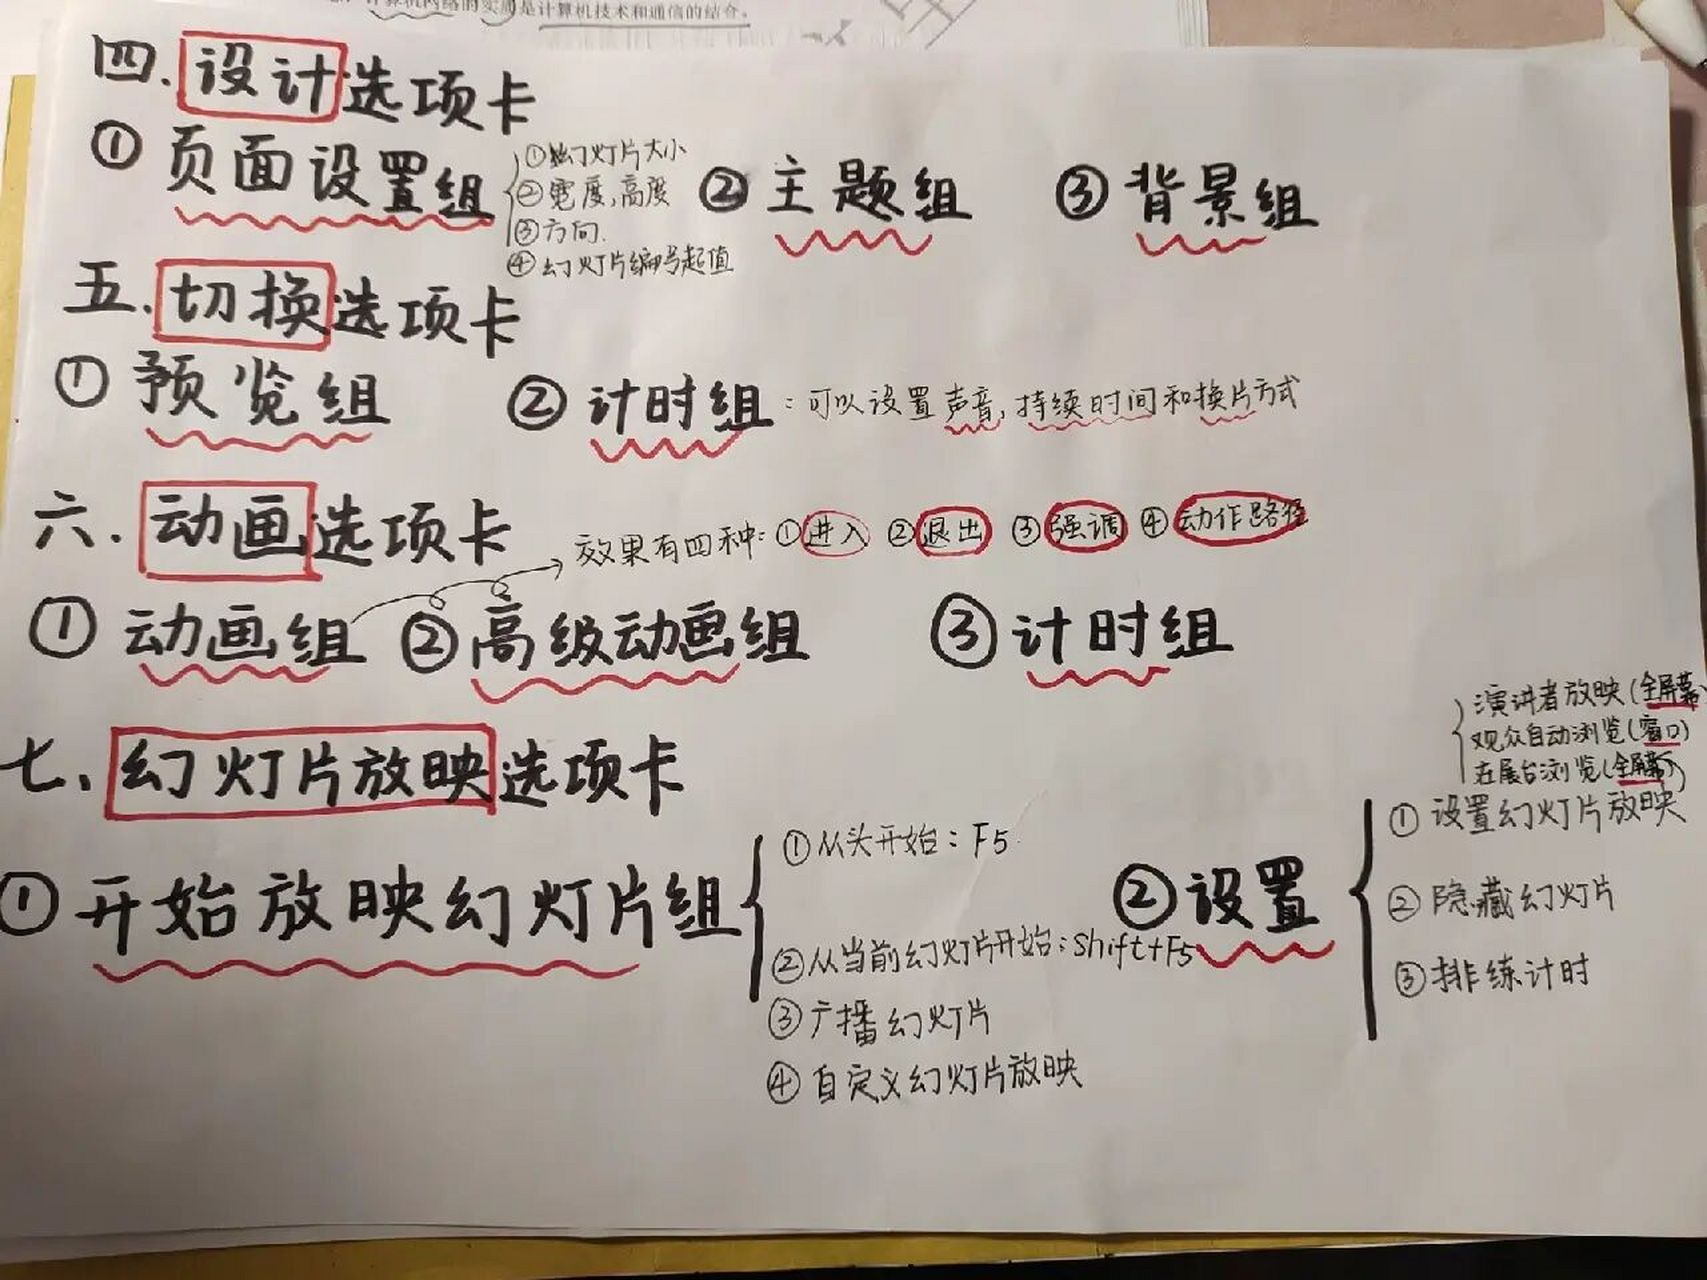 计算机网络的实质是计算机技术和通信的结合。
四.设计选项卡
①页面设置组
①幻灯片大小
②宽度,高度
③方向.
④幻灯片编号起值
②主题组
③背景组
五.切换选项卡
①预览组
②计时组:可以设置声音,持续时间和换片方式
六.动画选项卡
效果有四种:①进入 ②退出 ③强调 ④动作路径
①动画组 ②高级动画组 ③计时组
七.幻灯片放映选项卡
①开始放映幻灯片组
①从头开始:F5
②从当前幻灯片开始:Shift+F5
③广播幻灯片
④自定义幻灯片放映
②设置
演讲者放映(全屏幕)
观众自动浏览(窗口)
在展台浏览(全屏幕)
①设置幻灯片放映
②隐藏幻灯片
③排练计时